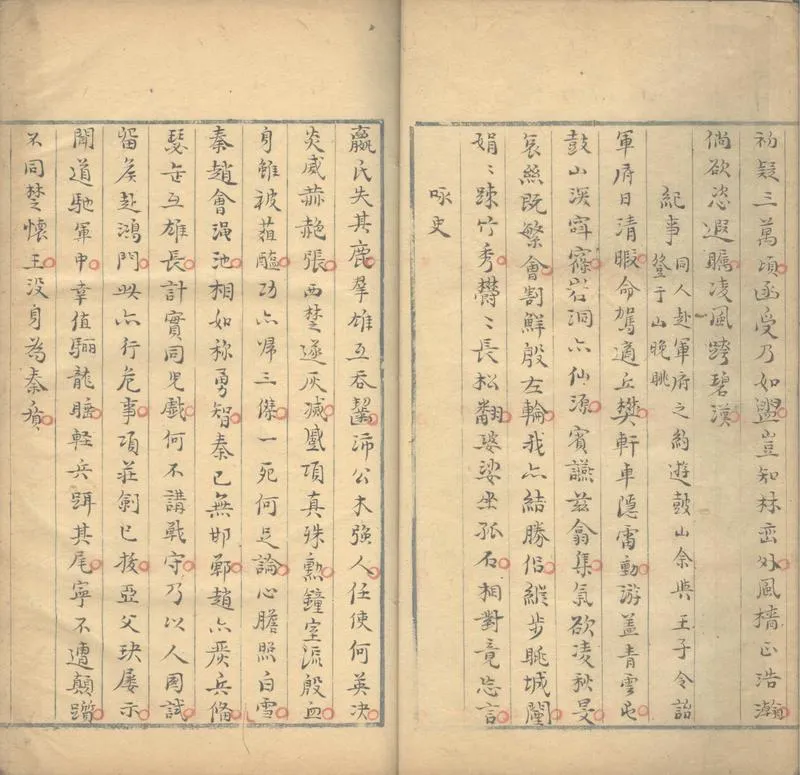 初疑三萬頃函受乃如盥豈知林巒外風檣正浩瀚
倘欲恣遐矚凌風跨碧漢
紀事
同人赴軍府之約遊鼓山余與王子令詒
登于山晚眺
軍府日清暇命駕適丘樊軒車隱雷動游蓋青雲屯
鼓山深窅窱岩洞亦仙源賓讌茲翕集氣欲凌秋旻
哀絲既繁會割鮮殷左輪我亦結勝侶縱步眺城闉
娟〻疎竹秀欝〻長松翻婆娑坐孤石相對竟忘言
咏史
嬴氏失其鹿羣雄互吞齧沛公木強人任使何英决
炎威赫赩張西楚遂灰滅龐項真殊勲鐘室流殷血
身雖被葅醢功亦歸三傑一死何足論心膽照白雪
秦趙會澠池相如称勇智秦已無邯鄲趙亦嚴兵俻
瑟缶互雄長計實同児戲何不講戰守乃以人國試
留矦赴鴻門此亦行危事項荘劍已拔亞父玦屡示
聞道馳軍中幸值驪龍睡軽兵躡其尾寧不遭顛躓
不同楚懷王没身為秦質